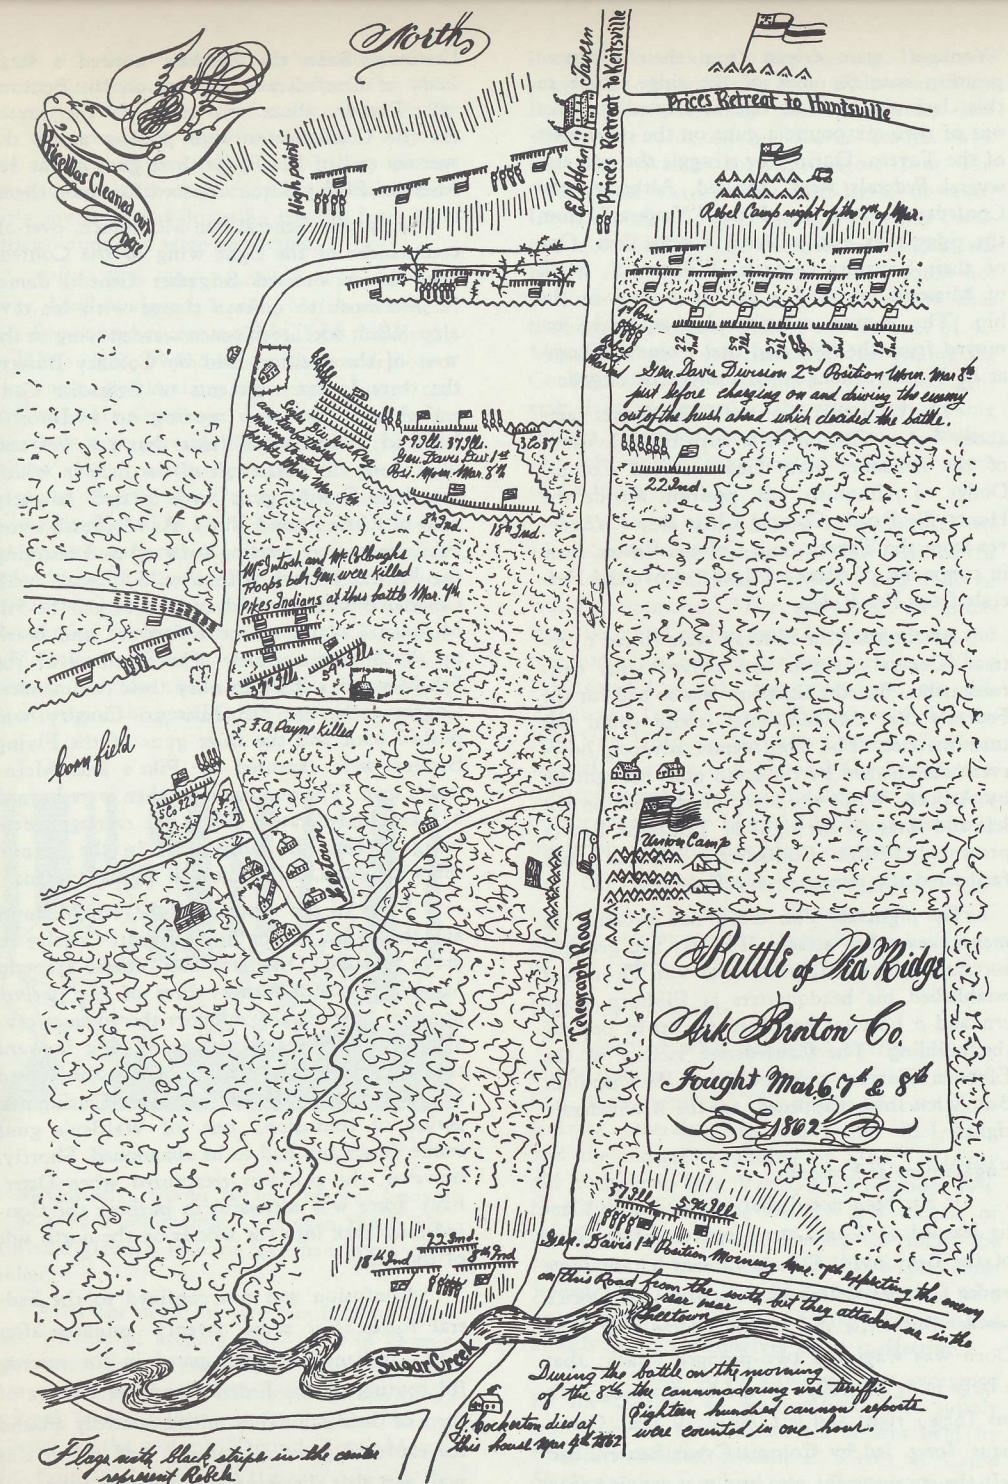 North
Price Was Cleaned out
here
High point
Elk Horn Tavern
Prices Retreat to Keitsville
Prices Retreat to Huntsville
Rebel Camp night of the 7th of Mar.
1st
22
Ind
59
Ills
37
Ills
8
Ind
18
Ind
Gen. Davis Division 2nd Position Morn. Mar 8th
just before charging on and driving the enemy
out of the brush ahead which decided the battle.
59 Ills. 37 Ills.
Gen. Davis Div 1st
Posi. Morn Mar. 8th
3 Co 37
Mar. 8th
8th Ind.
18th Ind.
22 Ind.
McIntosh and McColloughs
Troops both Gen. were killed
Pikes Indians at this battle Mar. 7th
37th Ills
59th Ills
F.A. Payne Killed
Cornfield
5 Co 22d
Leetown
Union Camp
Telegraph Road
Battle of Pea Ridge
Ark. Brnton Co.
Fought Mar 6, 7th & 8th
1862
37 Ills.
59th Ills.
Gen. Davis 1st Position Morning Mar. 7th expecting the enemy
on this Road from the south but they attacked us in the
rear near
Leetown
18th Ind
22 Ind.
8th Ind
Sugar Creek
During the battle on the morning
of the 8th the cannonadering was truffic
Eighteen hundred cannon reports
were counted in one hour
J Cockerton died at
this house Mar 9th 1862
Flags with black strips in the center
represent Rebels